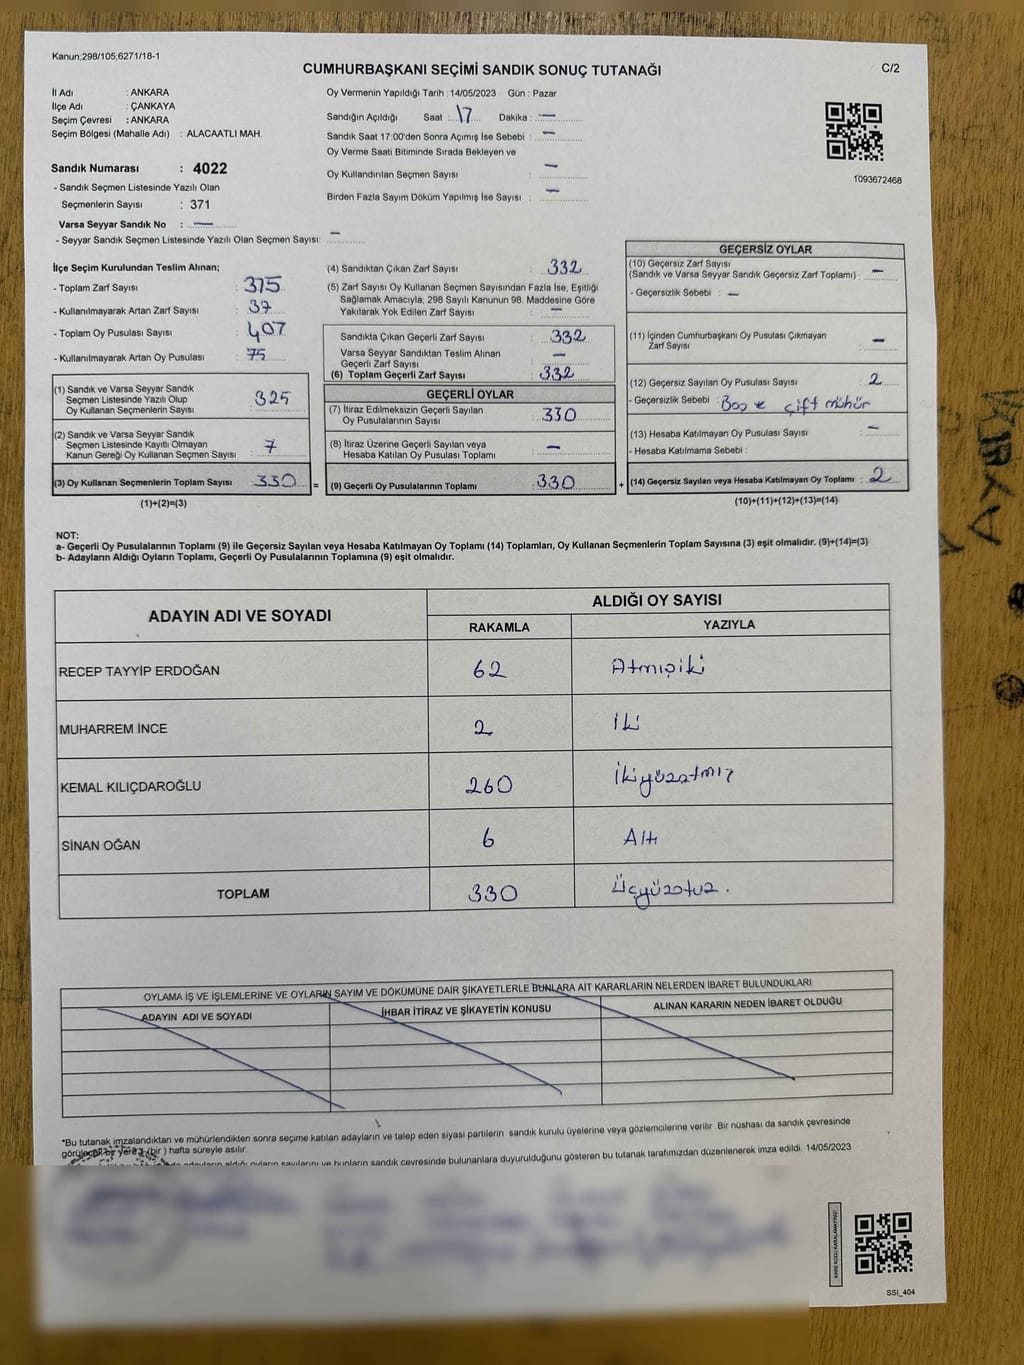 Kanun;298/105;6271/18-1
CUMHURBAŞKANI SEÇİMİ SANDIK SONUÇ TUTANAĞI
C/2
İl Adı : ANKARA
İlçe Adı : ÇANKAYA
Seçim Çevresi : ANKARA
Seçim Bölgesi (Mahalle Adı) : ALACAATLI MAH.
Sandık Numarası : 4022
- Sandık Seçmen Listesinde Yazılı Olan
Seçmenlerin Sayısı : 371
Varsa Seyyar Sandık No : —
- Seyyar Sandık Seçmen Listesinde Yazılı Olan Seçmen Sayısı: —
Oy Vermenin Yapıldığı Tarih : 14/05/2023 Gün : Pazar
Sandığın Açıldığı Saat : 17 Dakika : —
Sandık Saat 17:00'den Sonra Açımış İse Sebebi : —
Oy Verme Saati Bitiminde Sırada Bekleyen ve
Oy Kullandırılan Seçmen Sayısı : —
Birden Fazla Sayım Döküm Yapılmış İse Sayısı : —
1093672468
İlçe Seçim Kurulundan Teslim Alınan;
- Toplam Zarf Sayısı : 375
- Kullanılmayarak Artan Zarf Sayısı : 37
- Toplam Oy Pusulası Sayısı : 407
- Kullanılmayarak Artan Oy Pusulası : 75
(1) Sandık ve Varsa Seyyar Sandık
Seçmen Listesinde Yazılı Olup
Oy Kullanan Seçmenlerin Sayısı : 325
(2) Sandık ve Varsa Seyyar Sandık
Seçmen Listesinde Kayıtlı Olmayan
Kanun Gereği Oy Kullanan Seçmen Sayısı : 7
(3) Oy Kullanan Seçmenlerin Toplam Sayısı : 330 =
(1)+(2)=(3)
(4) Sandıktan Çıkan Zarf Sayısı : 332
(5) Zarf Sayısı Oy Kullanan Seçmen Sayısından Fazla İse, Eşitliği
Sağlamak Amacıyla; 298 Sayılı Kanunun 98. Maddesine Göre
Yakılarak Yok Edilen Zarf Sayısı : —
Sandıkta Çıkan Geçerli Zarf Sayısı : 332
Varsa Seyyar Sandıktan Teslim Alınan
Geçerli Zarf Sayısı : —
(6) Toplam Geçerli Zarf Sayısı : 332
GEÇERLİ OYLAR
(7) İtiraz Edilmeksizin Geçerli Sayılan
Oy Pusulalarının Sayısı : 330
(8) İtiraz Üzerine Geçerli Sayılan veya
Hesaba Katılan Oy Pusulası Toplamı : —
(9) Geçerli Oy Pusulalarının Toplamı : 330 +
GEÇERSİZ OYLAR
(10) Geçersiz Zarf Sayısı
(Sandık ve Varsa Seyyar Sandık Geçersiz Zarf Toplamı) : —
- Geçersizlik Sebebi : —
(11) İçinden Cumhurbaşkanı Oy Pusulası Çıkmayan
Zarf Sayısı : —
(12) Geçersiz Sayılan Oy Pusulası Sayısı : 2
- Geçersizlik Sebebi : Boş ve çift mühür
(13) Hesaba Katılmayan Oy Pusulası Sayısı : —
- Hesaba Katılmama Sebebi :
(14) Geçersiz Sayılan veya Hesaba Katılmayan Oy Toplamı : 2
(10)+(11)+(12)+(13)=(14)
NOT:
a- Geçerli Oy Pusulalarının Toplamı (9) ile Geçersiz Sayılan veya Hesaba Katılmayan Oy Toplamı (14) Toplamları, Oy Kullanan Seçmenlerin Toplam Sayısına (3) eşit olmalıdır. (9)+(14)=(3)
b- Adayların Aldığı Oyların Toplamı, Geçerli Oy Pusulalarının Toplamına (9) eşit olmalıdır.
ADAYIN ADI VE SOYADI
ALDIĞI OY SAYISI
RAKAMLA YAZIYLA
RECEP TAYYİP ERDOĞAN 62 Atmışiki
MUHARREM İNCE 2 İki
KEMAL KILIÇDAROĞLU 260 İkiyüzatmış
SİNAN OĞAN 6 Altı
TOPLAM 330 Üçyüzotuz.
OYLAMA İŞ VE İŞLEMLERİNE VE OYLARIN SAYIM VE DÖKÜMÜNE DAİR ŞİKAYETLERLE BUNLARA AİT KARARLARIN NELERDEN İBARET BULUNDUKLARI
ADAYIN ADI VE SOYADI İHBAR İTİRAZ VE ŞİKAYETİN KONUSU ALINAN KARARIN NEDEN İBARET OLDUĞU
*Bu tutanak imzalandıktan ve mühürlendikten sonra seçime katılan adayların ve talep eden siyasi partilerin sandık kurulu üyelerine veya gözlemcilerine verilir .Bir nüshası da sandık çevresinde
görülecek bir yere 1 (bir ) hafta süreyle asılır.
adayların aldığı oyların sayılarını ve bunların sandık çevresinde bulunanlara duyurulduğunu gösteren bu tutanak tarafımızdan düzenlenerek imza edildi. 14/05/2023
KARE KODU KARALAMAYINIZ!
SSI_404